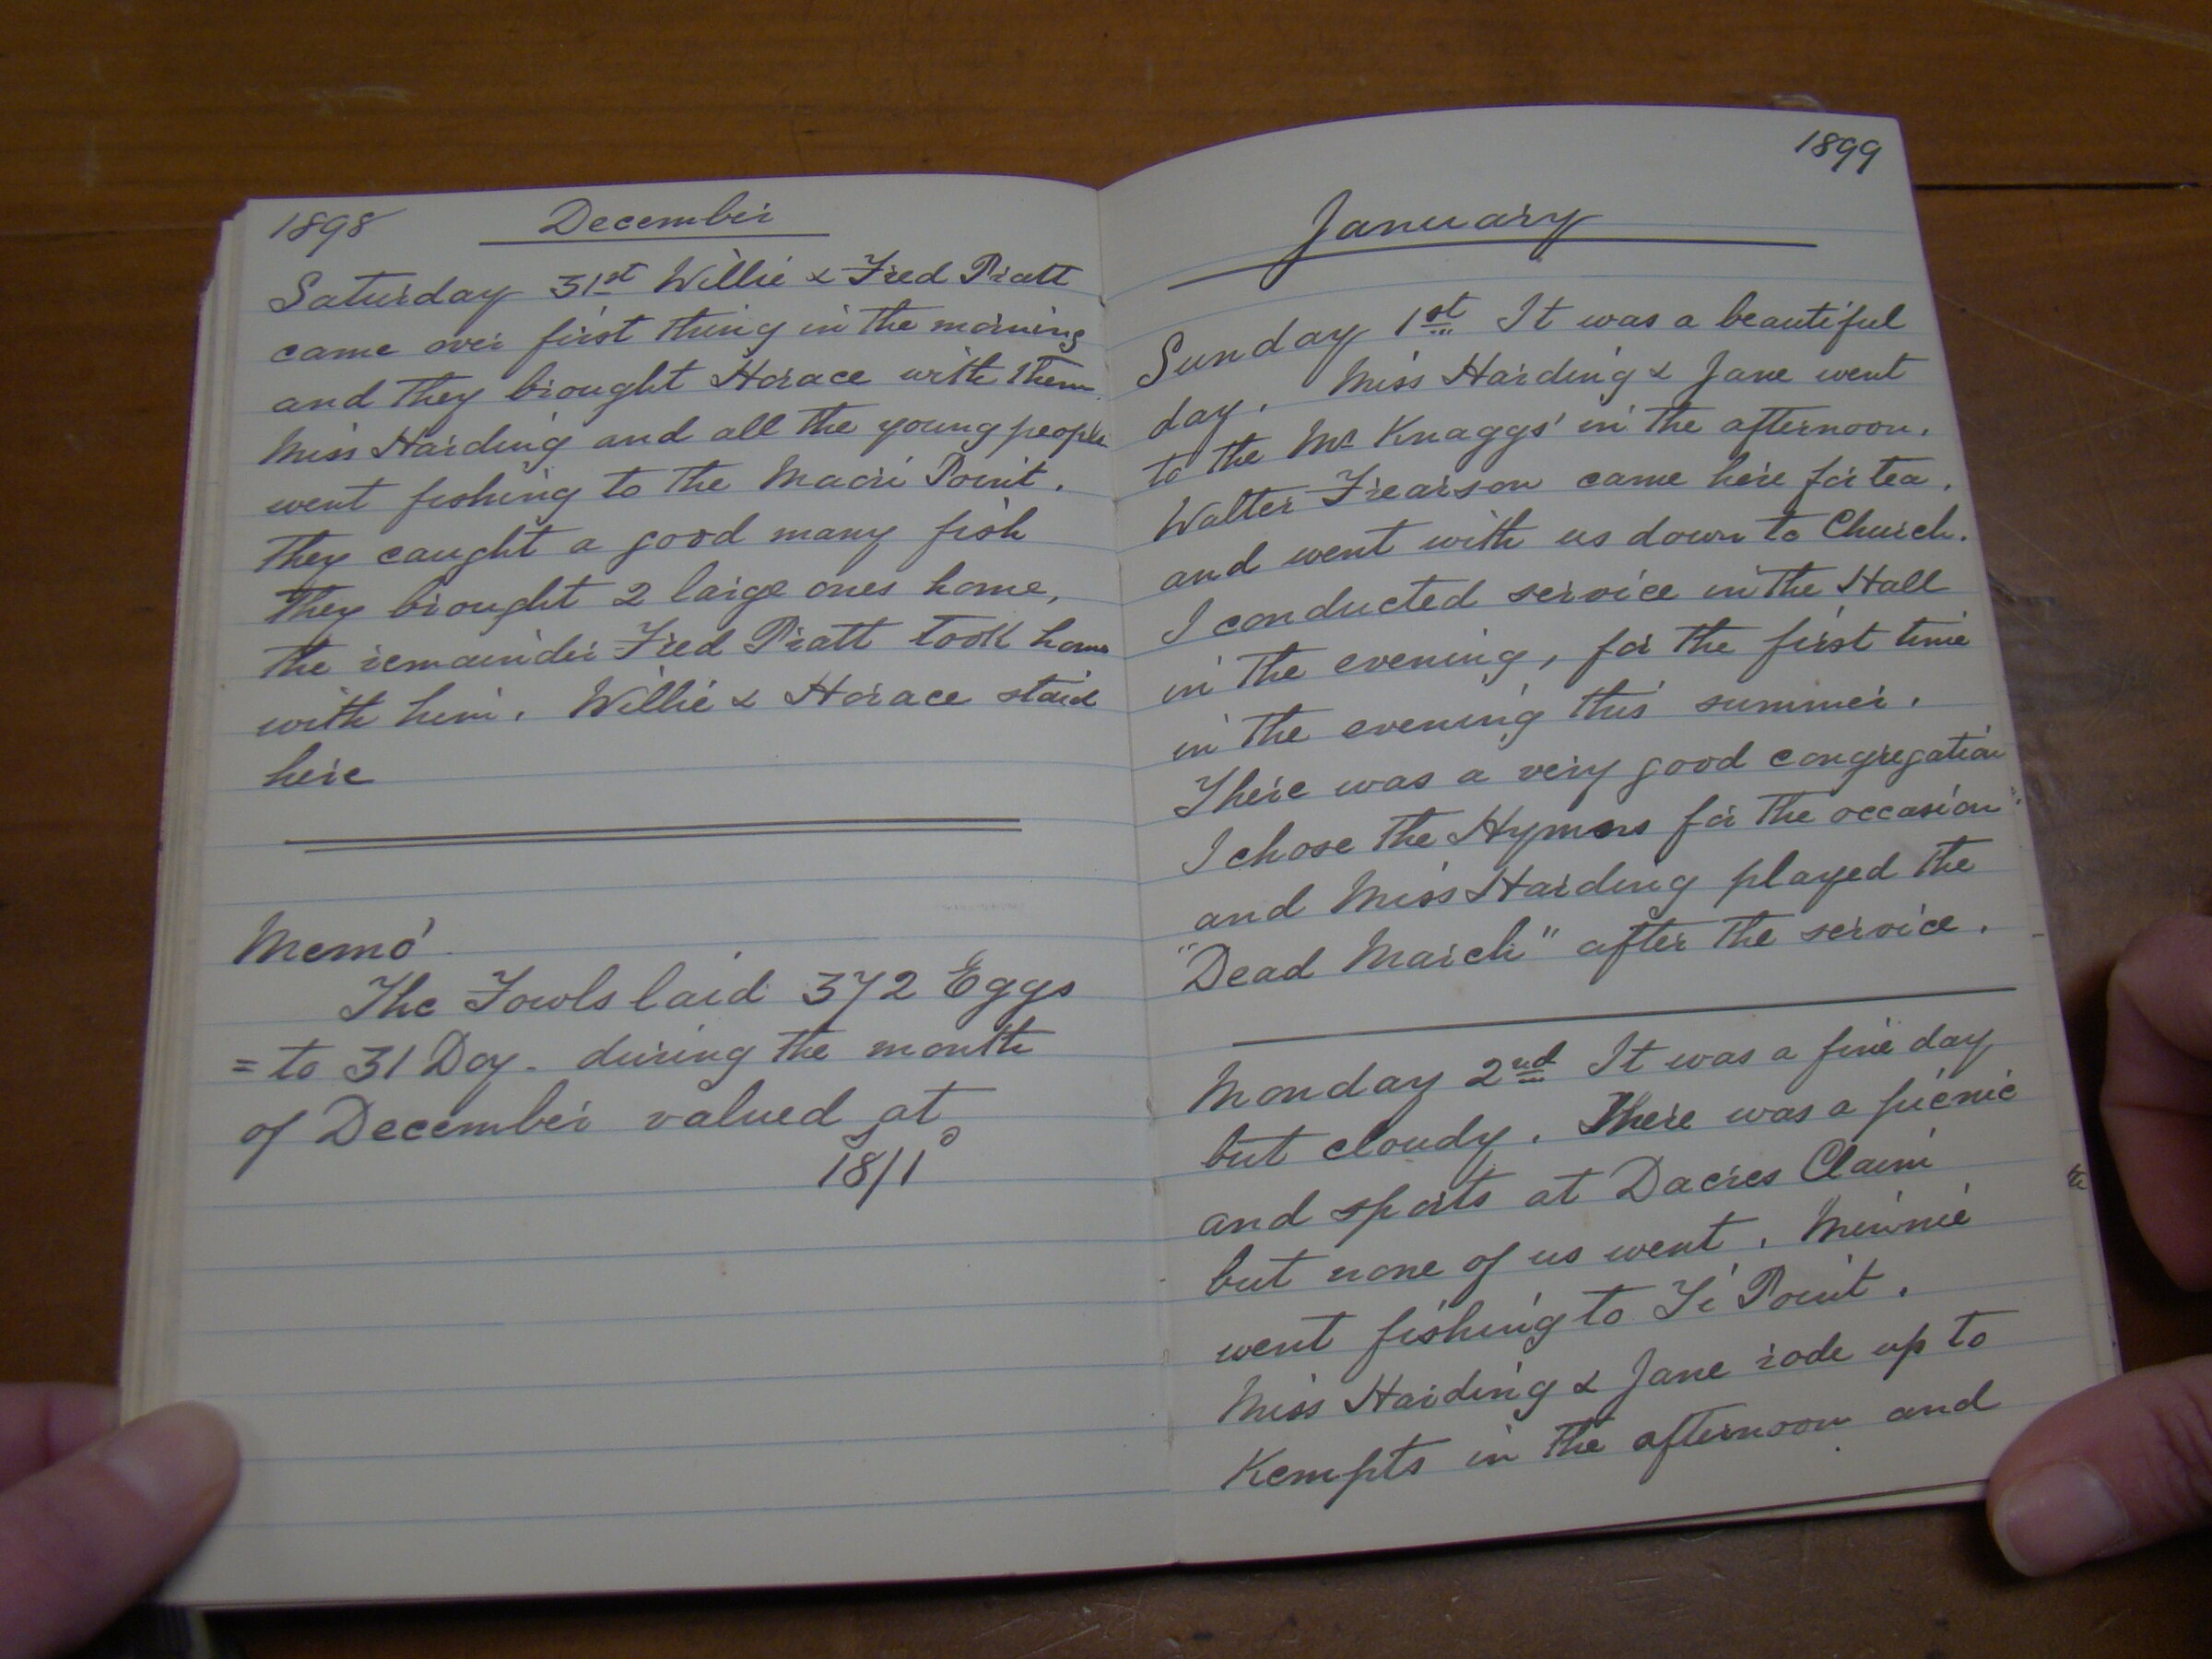 1898 December
Saturday 31st Willie & Fred Pratt
came over first thing in the morning
and they brought Horace with them.
Miss Harding and all the young people
went fishing to the Maori Point.
They caught a good many fish
They brought 2 large ones home,
the remainder Fred Pratt took home
with him. Willie & Horace staid
here
Memo
The Fowls laid 372 Eggs
= to 31 Doz. during the month
of December valued at
18/1
1899
January
Sunday 1st It was a beautiful
day. Miss Harding & Jane went
to the Mc Knaggs' in the afternoon.
Walter Frearson came here for tea,
and went with us down to Church.
I conducted service in the Hall
in the evening, for the first time
in the evening this summer.
There was a very good congregation
I chose the Hymns for the occasion
and Miss Harding played the
"Dead March" after the service.
Monday 2nd It was a fine day
but cloudy. There was a picnic
and sports at Dacres Claim
but none of us went. Minnie
went fishing to Ti Point.
Miss Harding & Jane rode up to
Kempts in the afternoon and